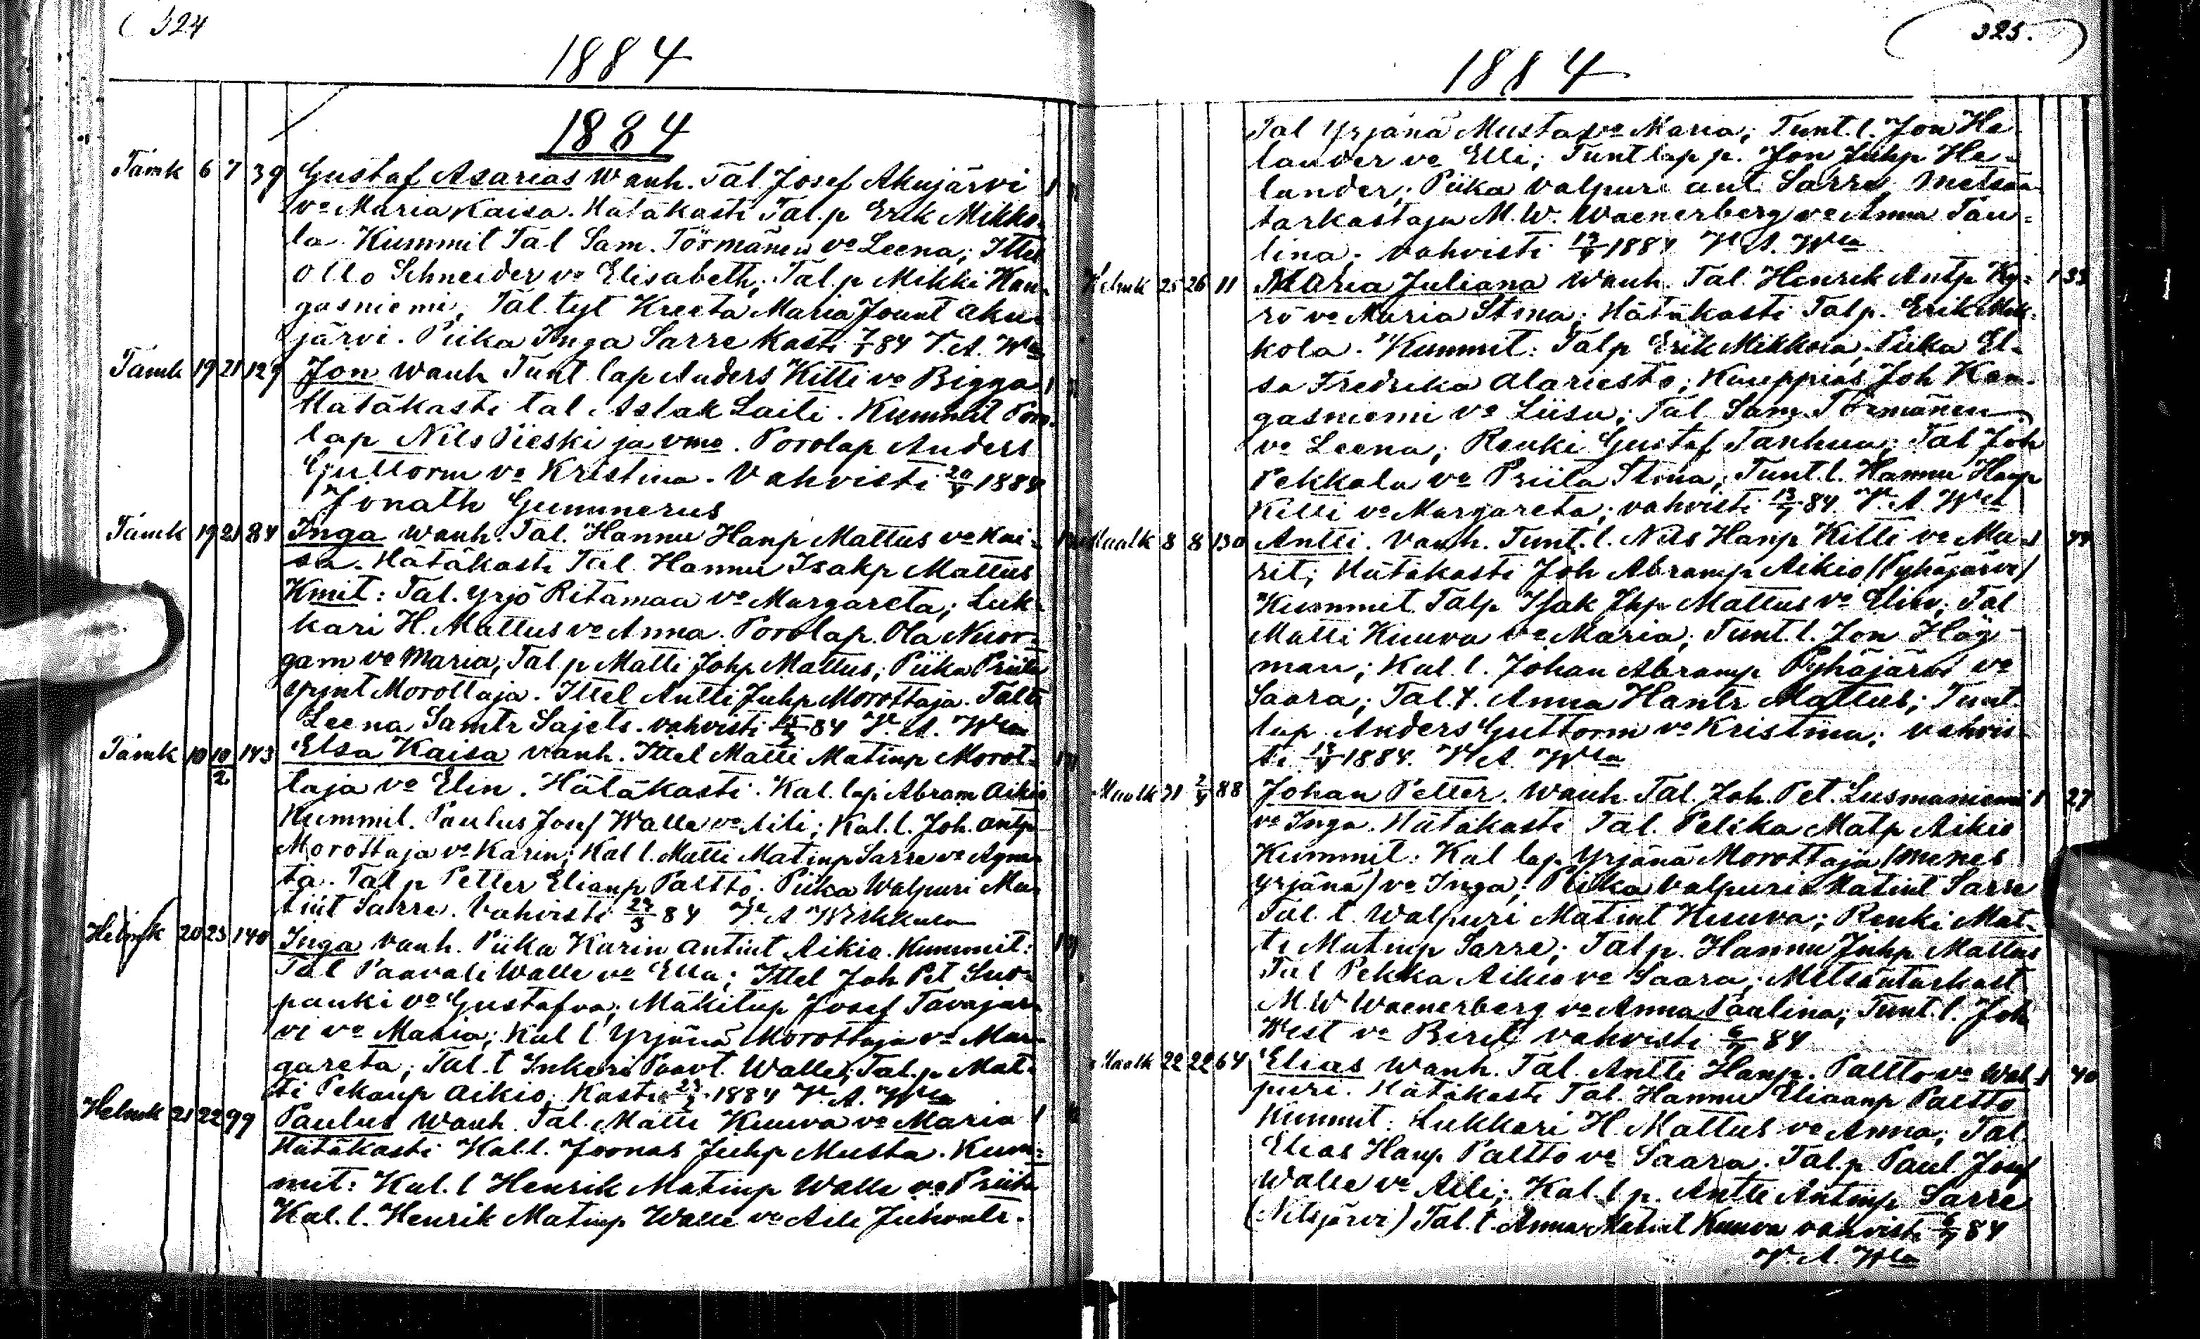 324
1884
1884
Tamk 6 7 39 Gustaf Asarias Wanh. Tal Josef Akujärvi 1
vo Maria Kaisa. Hätäkasti Tal.p Erik Mikko-
la. Kummit Tal Sam. Törmänen vo Leena; Ittel
Ollo Schneider vo Elisabeth; Tal.p Mikki Kan-
gasniemi; Tal.tyt Kreeta Maria Jount Aku-
järvi. Piika Inga Sarre Kasti 7/1 84 V. A. Wla
Tamk 19 21 129 Jon Wanh Tunt lap Anders Kitti vo Bigga 1
Hätäkasti tal Aslak Laiti. Kummit Poro
lap Nils Pieski ja vmo. Porolap Anders
Guttorm vo Kristina. Vahvisti 1884
Jonath Gummerus
Tamk 19 21 84 Inga Wanh. Tal. Hannu Hanp Mattus vo Kai-
sa. Hätäkasti Tal. Hannu Isakp Mattus
Kmit: Tal. Yrjö Ritamaa vo Margareta; Luk-
kari H. Mattus vo Anna. Porolap. Ola Nuor-
gam vo Maria; Tal.p Matti Johp Mattus; Piika Priita
Yrjnt Morottaja. Ittel Antti Juhp Morottaja. Talt
Leena Samtr Sajets. vahvisti 84 V. A. Wla
Tamk 10 10/2 143 Elsa Kaisa vanh. Ittel Matti Matinp Morot-
taja vo Elin. Hätäkasti. Kal. lap Abram Aikio
Kummit. Paulus Josef Walle vo Aili; Kal. l. Joh. antp
Morottaja vo Karin; Kal l. Matti Matinp Sarre vo Agne-
ta. Tal p Petter Elianp Paltto. Piika Walpuri Ma-
tint Sarre. Vahvisti 23/3 84 V. A. Wishkula
Helmk 20 23 140 Inga vanh. Piika Karin Antint Aikio. Kummit:
Tal Paavali Walle vo Ella; Ittel Joh Pet Suo-
panki vo Gustafva; Mäkitup Josef Tavajär-
vi vo Maria; Kal l Yrjänä Morottaja vo Mar-
gareta; Tal. t Inkeri Paavt. Walle; Tal.p. Mat-
ti Pekanp Aikio. Kasti 23/2 1884 V. A. Wla
Helmk 21 22 99 Paulus Wanh. Tal. Matti Kuuva vo Maria 1
Hätäkasti Kal.l. Joonas Juhp Musta. Kum-
mit: Kal. l Henrik Matinp Walle vo Priita
Kal. l. Henrik Matinp Walle vo Aili Juhontr.
325.
1884
Tal Yrjänä Musta vo Maria; Tunt. l. Jon He-
lander vo Elli; Tunt lap p. Jon Juhp He-
lander; Piika Valpuri ant. Sarre, Metsän
tarkastaja M. W. Waenerberg vo Anna Pau-
lina. vahvisti 1884 V. A. Wla
Helmk 25 26 11 Maria Juliana Wanh. Tal. Henrik Antp Ky- 1 33
rö vo Maria Stina; Hätäkasti Talp. Erik Mik-
kola. Kummit: Talp Erik Mikkola, Piika El-
sa Fredrika Alariesto; Kauppias Joh Kan-
gasniemi vo Liisa; Tal Sam. Törmänen
vo Leena; Renki Gustaf Tanhua; Tal Joh
Pekkala vo Priita Stina; Tunt. l. Hannu Hanp
Kitti vo Margareta; vahvisti 84. V. A. Wla
Maalk 8 8 130 Antti. Vanh. Tunt. l. Nils Hanp Kitti vo Ma- 1
rit; Hätäkasti Joh Abramp Aikio (Pyhäjärvi)
Kummit Talp Isak Jhp Mattus vo Elin; Tal
Matti Kuuva vo Maria; Tunt. l. Jon Häg-
man; Kal. l. Johan Abramp Pyhäjärvi vo
Saara; Tal. t. Anna Hantr Mattus; Tunt.
lap Anders Guttorm vo Kristina; vahvis-
ti 1884. V. A. Wla
Maalk 31 2/4 88 Johan Petter. Wanh. Tal. Joh. Pet. Lusmaniemi 1 27
vo Inga. Hätäkasti Tal. Pekka Matp Aikio
Kummit: Kal lap Yrjänä Morottaja
Yrjänä) vo Inga; Piika Valpuri Matint Sarre
Tal t. Walpuri Matint Kuuva; Renki Mat-
ti Matinp Sarre; Tal p. Hannu Juhp Mattus
Tal Pekka Aikio vo Saara; Metsäntarkast
M. W Waenerberg vo Anna Paulina; Tunt. l. Joh
West vo Birit vahvisti 84
Maalk 22 22 64 Elias Wanh. Tal. Antti Hanp. Paltto vo Wal- 1 40
puri. Hätäkasti Tal. Hannu Eliaanp Paltto
Kummit: Lukkari H. Mattus vo Anna; Tal
Elias Hanp Paltto vo Saara. Tal.p. Paul Josef
Walle vo Aili; Kal. l p. Antti Antinp Sarre
(Nitsjärvi) Tal. t. Anna Matint Kuuva vahvisti 84
V. A. Wla